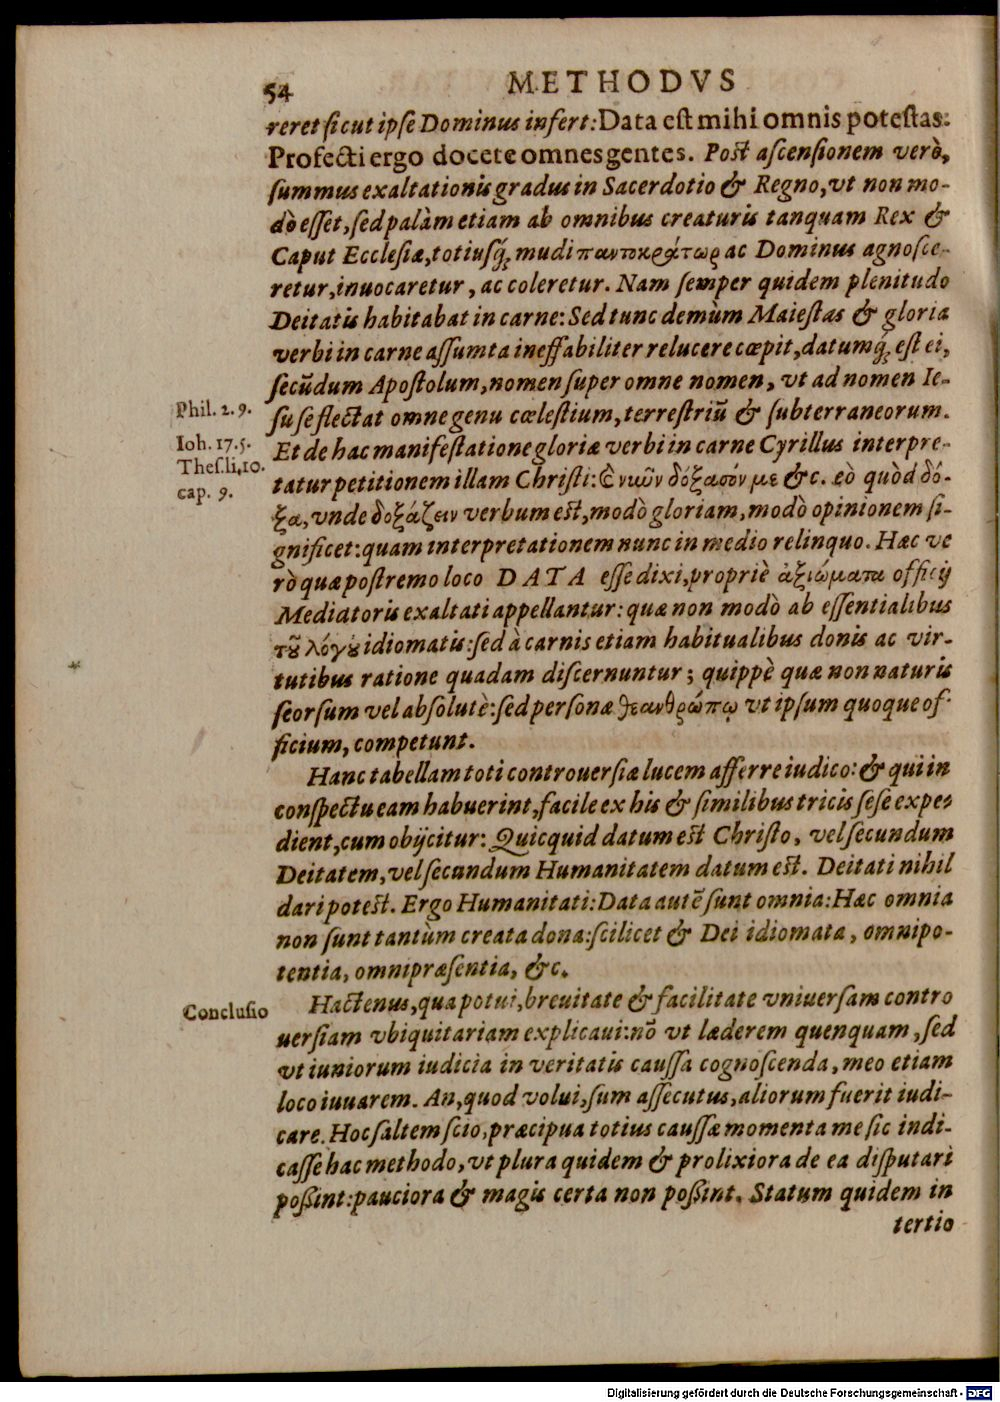 54 METHODVS
reret sicut ipse Dominus infert: Data est mihi omnis potestas:
Profecti ergo docete omnes gentes. Post ascensionem verò,
summus exaltationis gradus in Sacerdotio & Regno, vt non mo-
dò esset, sed palàm etiam ab omnibus creaturis tanquam Rex &
Caput Ecclesiæ, totiusq́; mũdi παντοκράτωρ ac Dominus agnosce-
retur, inuocaretur, ac coleretur. Nam semper quidem plenitudo
Deitatis habitabat in carne: Sed tunc demùm Maiestas & gloria
verbi in carne assumta ineffabiliter relucere cœpit, datumq́; est ei,
secũdum Apostolum, nomen super omne nomen, vt ad nomen Ie-
Phil. 2. 9.
su se flectat omne genu cœlestium, terrestriũ & subterraneorum.
Ioh. 17. 5.
Et de hac manifestatione gloriæ verbi in carne Cyrillus interpre-
Thes. li, 10.
tatur petitionem illam Christi: Ἐ νιῶν δόξασόν με &c. eò quòd δό-
cap. 9.
ξα, vnde δοξάζειν verbum est, modò gloriam, modò opinionem si-
gnificet: quam interpretationem nunc in medio relinquo. Hæc ve
rò quæ postremo loco DATA esse dixi, propriè ἀξιώματα officij
Mediatoris exaltati appellantur: quæ non modò ab essentialibus
τοῦ λόγου idiomatis: sed à carnis etiam habitualibus donis ac vir-
tutibus ratione quadam discernuntur; quippè quæ non naturis
seorsum vel absolutè: sed personæ θεανθρώπῳ vt ipsum quoque of-
ficium, competunt.
Hanc tabellam toti controuersiæ lucem afferre iudico: & qui in
conspectu eam habuerint, facile ex his & similibus tricis sese expe-
dient, cum obijcitur: Quicquid datum est Christo, vel secundum
Deitatem, vel secundum Humanitatem datum est. Deitati nihil
dari potest. Ergo Humanitati: Data autẽ sunt omnia: Hæc omnia
non sunt tantùm creata dona: scilicet & Dei idiomata, omnipo-
tentia, omnipræsentia, &c.
Conclusio
Hactenus, qua potui, breuitate & facilitate vniuersam contro
uersiam vbiquitariam explicaui: nõ vt læderem quenquam, sed
vt iuniorum iudicia in veritatis caussa cognoscenda, meo etiam
loco iuuarem. An, quod volui, sum assecutus, aliorum fuerit iudi-
care. Hoc saltem scio, præcipua totius caussæ momenta me sic indi-
casse hac methodo, vt plura quidem & prolixiora de ea disputari
possint: pauciora & magis certa non possint. Statum quidem in
tertio
Digitalisierung gefördert durch die Deutsche Forschungsgemeinschaft - DFG